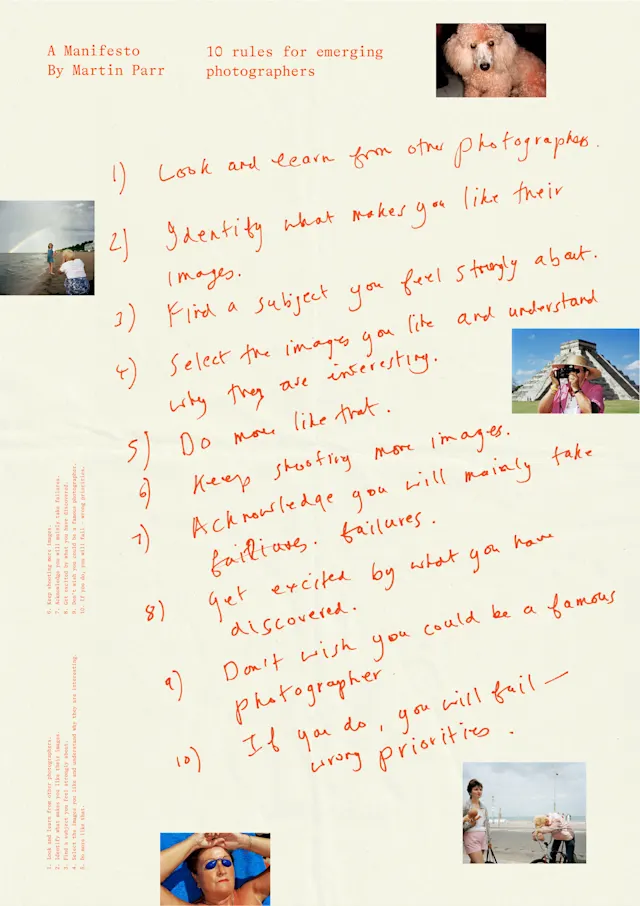 A Manifesto
By Martin Parr
10 rules for emerging
photographers
1) Look and learn from other photographers.
2) Identify what makes you like their
images.
3) Find a subject you feel strongly about.
4) Select the images you like and understand
why they are interesting.
5) Do more like that.
6) Keep shooting more images.
7) Acknowledge you will mainly take
failures. failures.
8) Get excited by what you have
discovered.
9) Don't wish you could be a famous
photographer.
10) If you do, you will fail —
wrong priorities.
1. Look and learn from other photographers.
2. Identify what makes you like their images.
3. Find a subject you feel strongly about.
4. Select the images you like and understand why they are interesting.
5. Do more like that.
6. Keep shooting more images.
7. Acknowledge you will mainly take failures.
8. Get excited by what you have discovered.
9. Don't wish you could be a famous photographer.
10. If you do, you will fail - wrong priorities.